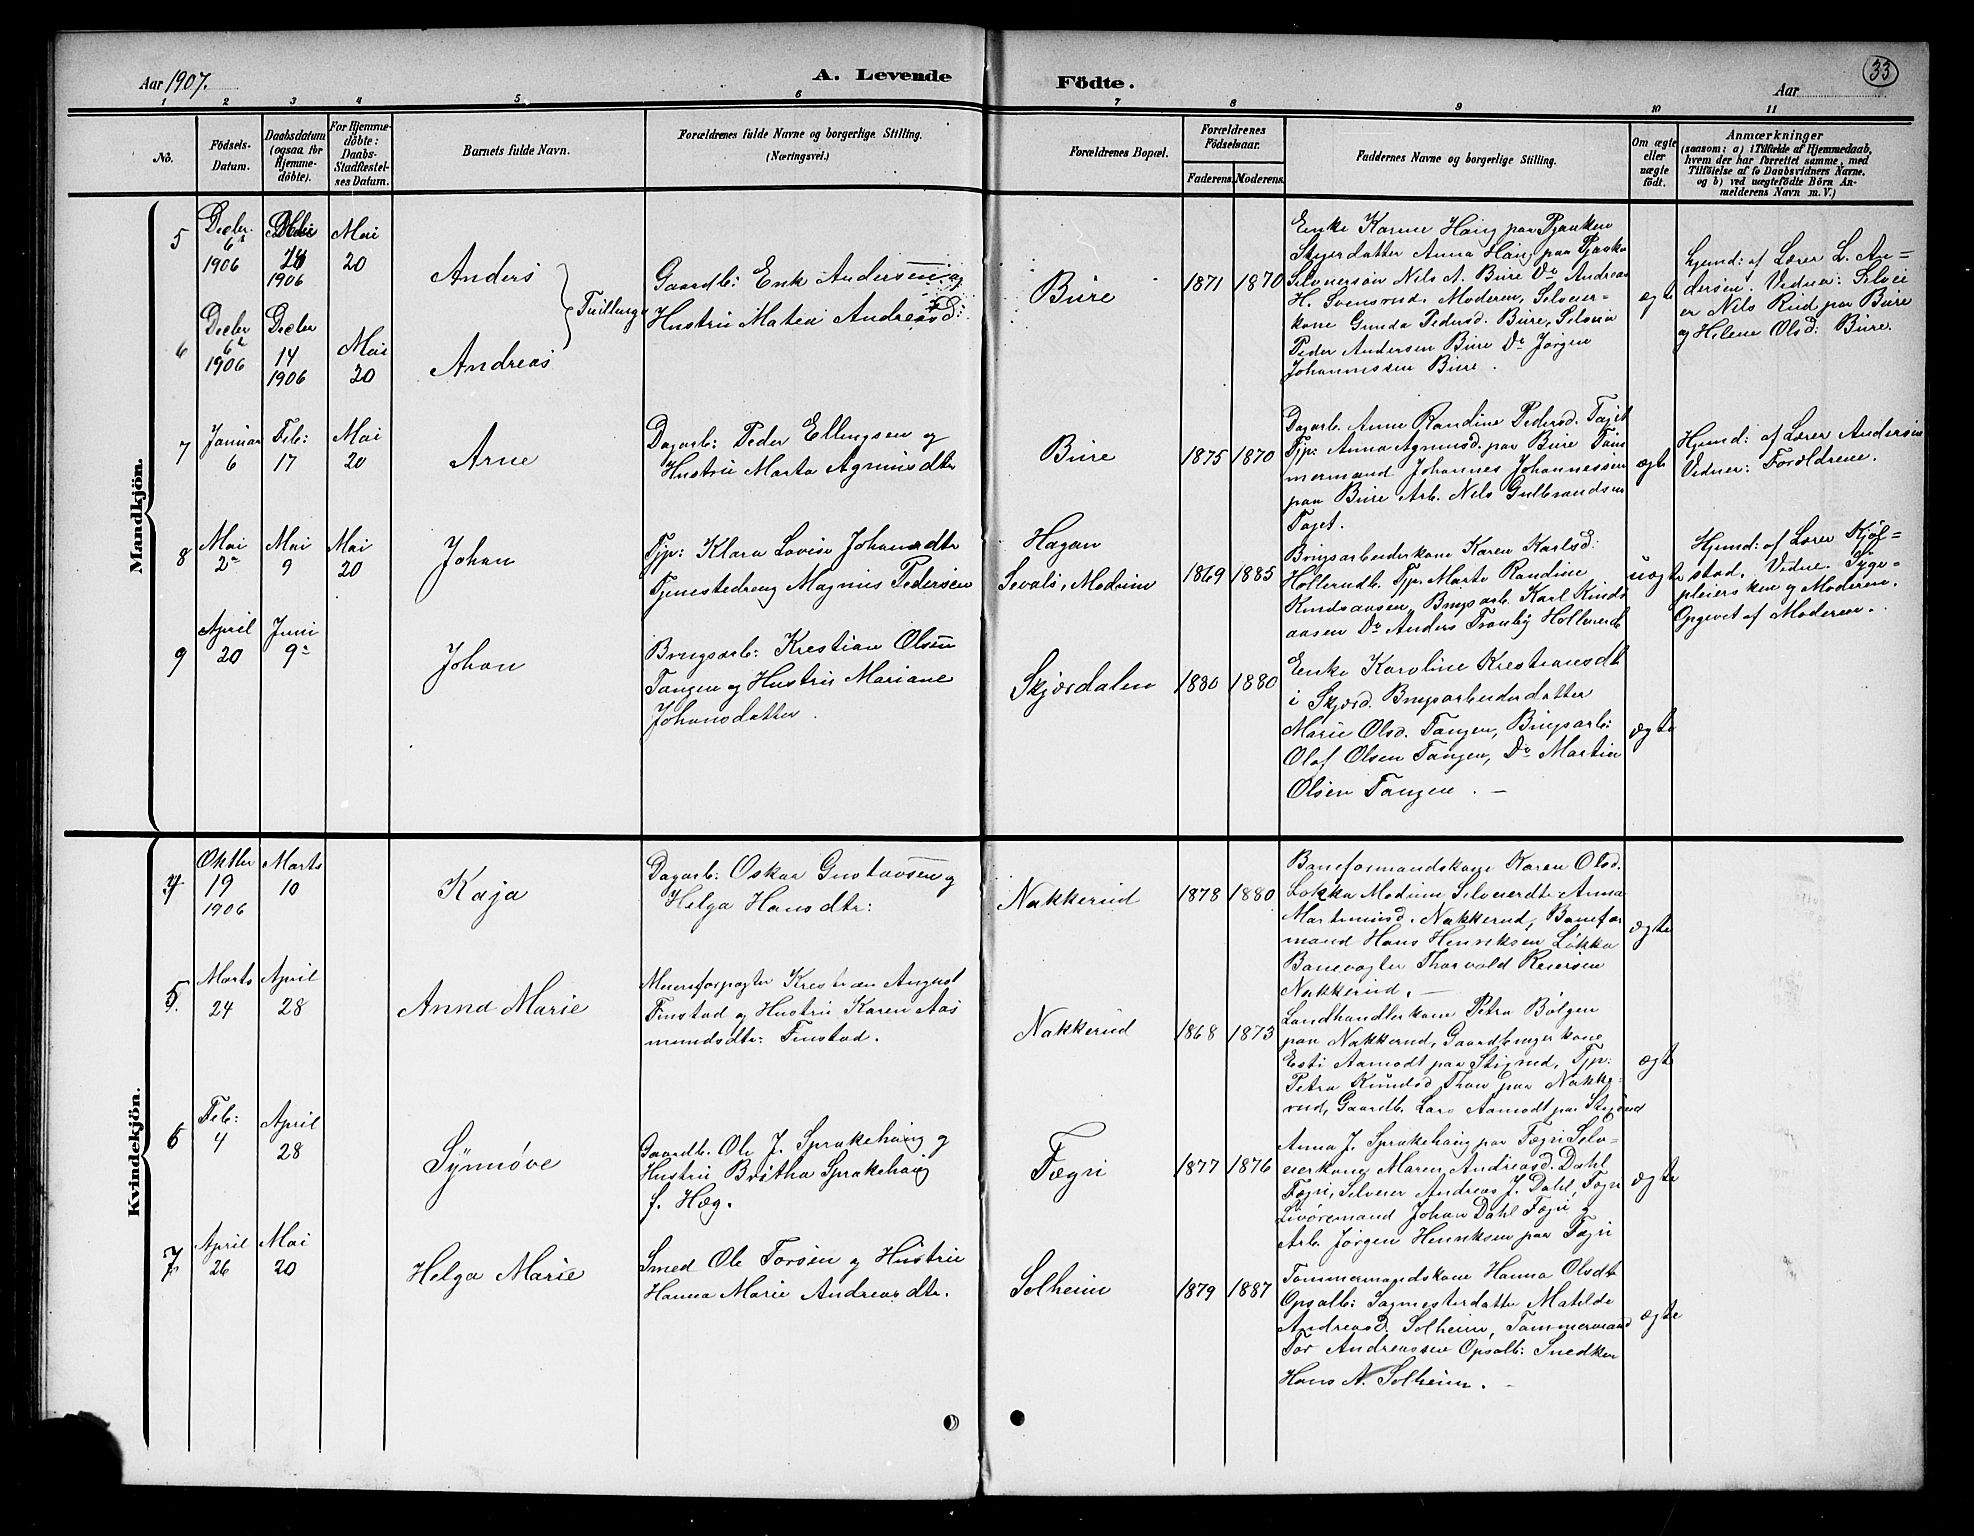 Aar 1907.
A. Levende
Födte.
Aar
33
1 2 3 4 5 6 7 8 9 10 11
No.
Födsels-
Datum.
Daabsdatum
(ogsaa for
Hjemme-
döbte).
For Hjemme-
döbte:
Daabs-
Stadfæstel-
ses Datum.
Barnets fulde Navn.
Forældrenes fulde Navne og borgerlige Stilling.
(Næringsvei.)
Forældrenes Bopæl.
Forældrenes
Födselsaar.
Faderens. Moderens.
Faddernes Navne og borgerlige Stilling.
Om ægte
eller
uægte
födt.
Anmærkninger
(saasom: a) i Tilfælde af Hjemmedaab,
hvem der har forrettet samme, med
Tilföielse af to Daabsvidners Navne.
og b) ved uægtefödte Börn An-
melderens Navn m. V.)
Mandkjön.
5
Decbr.
6
1906
1906
Mai
20
Anders
Tvillinger
Gaardb: Erik Andersen og
Hustru Maten Andreasd:
Bure
1871
1870
Enke Karine Haug paa Pjaaken
Anna Haug paa Pjaake
Selveiersøn Nils A. Bure Do Andreas
H. Svensrud. Moderen, Selveier-
kone Gunda Pedersd. Bure, Selveier
Peder Andersen Bure Do Jørgen
Johannessen Bure.
ægte
Hjemd: af Lærer L. An-
dersen. Vidner: Selvei
er Nils Rud paa Bure
og Helene Olsd: Bure.
6
Decbr
6
1906
Decbr
14
1906
Mai
20
Andreas
7
Januar
6
Feb:
17
Mai
20
Arne
Dagarb: Peder Ellingsen og
Hustru Marta Agnusdtr
Bure
1875
1870
Dagarb. Anne Randine Pedersd. Tajet
Tjp: Anna Agnusd. paa Bure Tøm
mermand Johannes Johannessen
paa Bure Arb. Nils Gulbrandsen
Tajet.
ægte
Hjemd: af Lærer Andersen
Vidner: Forældrene.
8
Mai
2
Mai
9
Mai
20
Johan
Tjp: Klara Lovise Johansdtr
Tjenestedreng Magnus Pedersen
Hagan
Sevals, Modum
1869
1885
Brugsarbeiderkone Karen Karlsd:
Hollerudb. Tjp. Marte Randine
Knudsaasen, Brugsarb. Karl Knuds
aasen Do Anders Tranby Hollerudb
uægte
Hjemd: af Lærer Kjøl-
stad. Vidne. Syge-
pleiersken og Moderen.
Opgivet af Moderen.
9
April
20
Juni
9
Johan
Brugsarb: Krestian Olsen
Tangen og Hustru Mariane
Johansdatter.
Skjærdalen
1880
1880
Enke Karoline Krestiansdt
i Skjærd. Brugsarbeiderdatter
Marie Olsd. Tangen, Brugsarb:
Olaf Olsen Tangen, Do Martin
Olsen Tangen. —
ægte
Kvindekjön.
4
Oktbr
19
1906
Marts
10
Kaja
Dagarb: Oskar Gustavsen og
Helga Hansdtr:
Nakkerud
1878
1880
Baneformandskone Karen Olsd.
Løkka Modum, Selveierdtr Anna
Martinusd. Nakkerud, Banefor
mand Hans Henriksen Løkka
Banevogter Thorvald Reiersen
Nakkerud. —
ægte
5
Marts
24
April
28
Anna Marie
Meieriforpagter Krestian August
Finstad og Hustru Karen Aas
mundsdtr: Finstad.
Nakkerud
1868
1873
Landhandlerkone Petra Bølgen
paa Nakkerud, Gaardbrugerkone
Esti Aamodt paa Stigrud, Tjp:
Petra Knudsd Thon paa Nakke-
rud, Gaardb. Lars Aamodt paa Stigrud
ægte
6
Feb:
4
April
28
Synnøve
Gaardb. Ole J. Sprakehaug og
Hustru Britha Sprakehaug
f. Hæg.
Fægri
1877
1876
Anna J. Sprakehaug paa Fægri Selv-
eierkone Maren Andreasd. Dahl
Fægri, Selveier Andreas J. Dahl, Fægri
Johan Dahl Fægri og
Arb. Jørgen Henriksen paa Fægri
ægte
7
April
26
Mai
20
Helga Marie
Smed Ole Torsen og Hustru
Hanna Marie Andreasdtr.
Solheim
1879
1887
Tømmermandskone Hanna Olsdt
Opsalb: Sagmesterdatter Matilde
Andreasd. Solheim, Tømmermand
Tor Andreassen Opsalb: Snedker
Hans A. Solheim. —
ægte